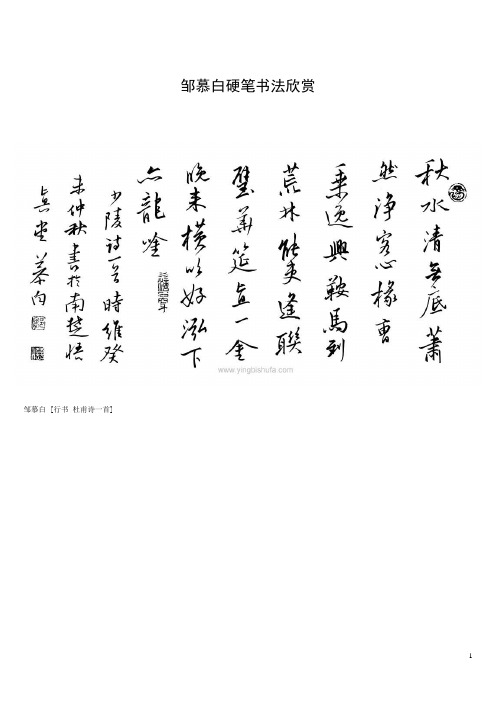 邹慕白硬笔书法欣赏
秋水清無底蕭
然净客心掾曹
乘逸興鞍馬到
荒林能吏逢聯
璧華筵直一金
晚来横吹好泓下
亦龍唫
少陵詩一首時維癸
未仲秋書於南楚悟
真堂慕白
www.yingbishufa.com
邹慕白 [行书 杜甫诗一首]
1